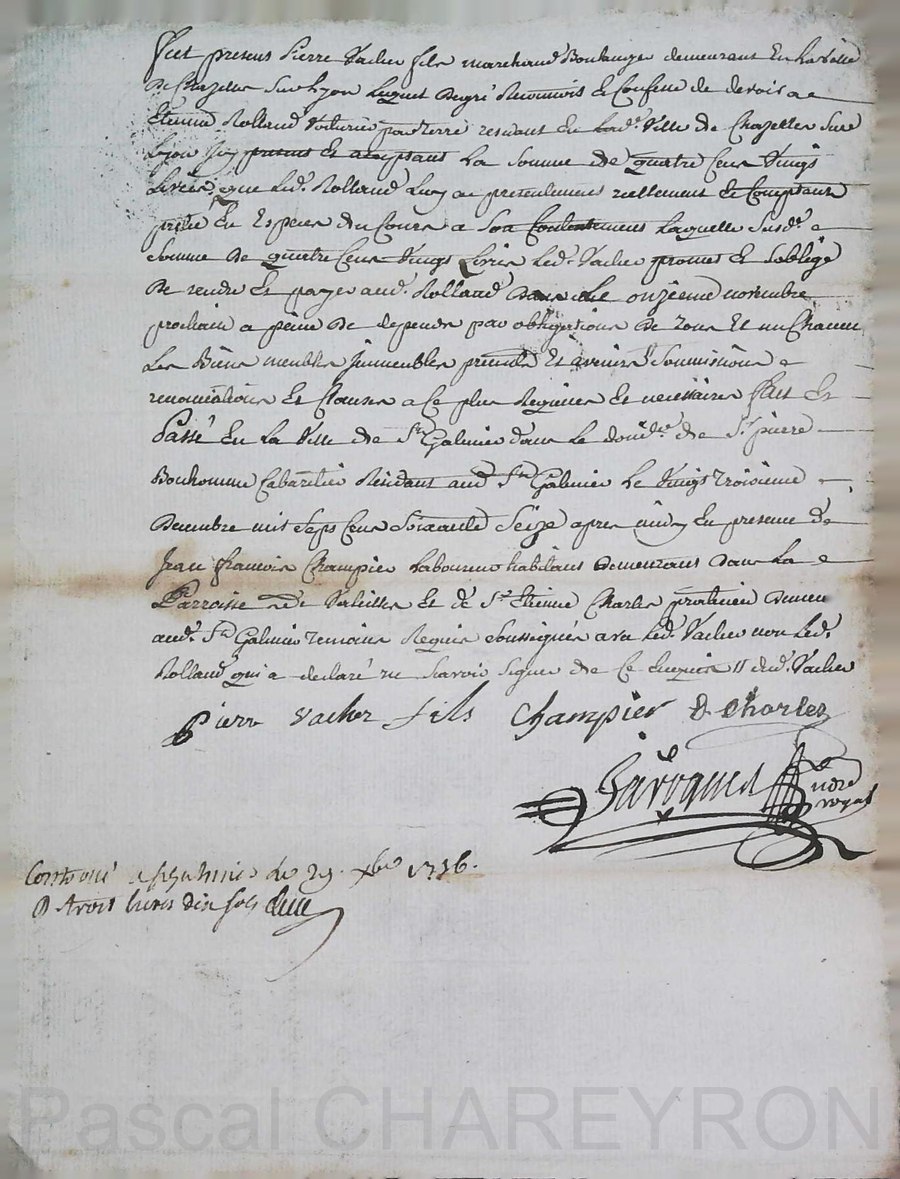 Fut present Pierre Vacher fils marchand Boulanger demeurant en la Ville
De Chazelles Sur Lyon Lequel De gré Reconnois et Confesse de devoir a
Etienne Rolland Voiturié par terre residant en lad.e Ville de Chazelles Sur
Lyon Icy present et acceptant La Somme de quatre Cens Vingt
Livres que Led. Rolland Luy a presentement reellement et Comptant
prêté En Especes du Cours a Son Contentement Laquelle Susd.e
Somme de quatre Cens Vingt Livres Led. Vacher promet et S'oblige
De rendre et payer aud. Rolland Dans Le onzieme novembre
prochain a peine De depends par obligations De Tous Et un Chacun
Les Biens meubles Immeubles presents Et avenirs Soumissions
renonciations Et Clauses a Ce plus Requises Et necessaires fait Et
Passé En La Ville de St Galmier dans Le domi.le de Sr pierre
Bonhomme Cabaretier Residant aud St Galmier Le Vingt Troisieme
Decembre mil Sept Cens Soixante Seize apres midy En presence de
Jean francois Champier Laboureur habitant Demeurant Dans La
Parroisse de et de Sr Etienne Charles praticien Demeu
aud. St Galmier temoins Requis Soussignés avec Led. Vacher non Led.
Rolland qui a declaré ne Scavoir Signer de Ce Enquis dud. Vacher
Pierre vacher fils Champier E Charles
ndre
royal
Controllé a St Galmier Le 29. Xbre 1776.
R trois livres dix sols
Pascal CHAREYRON